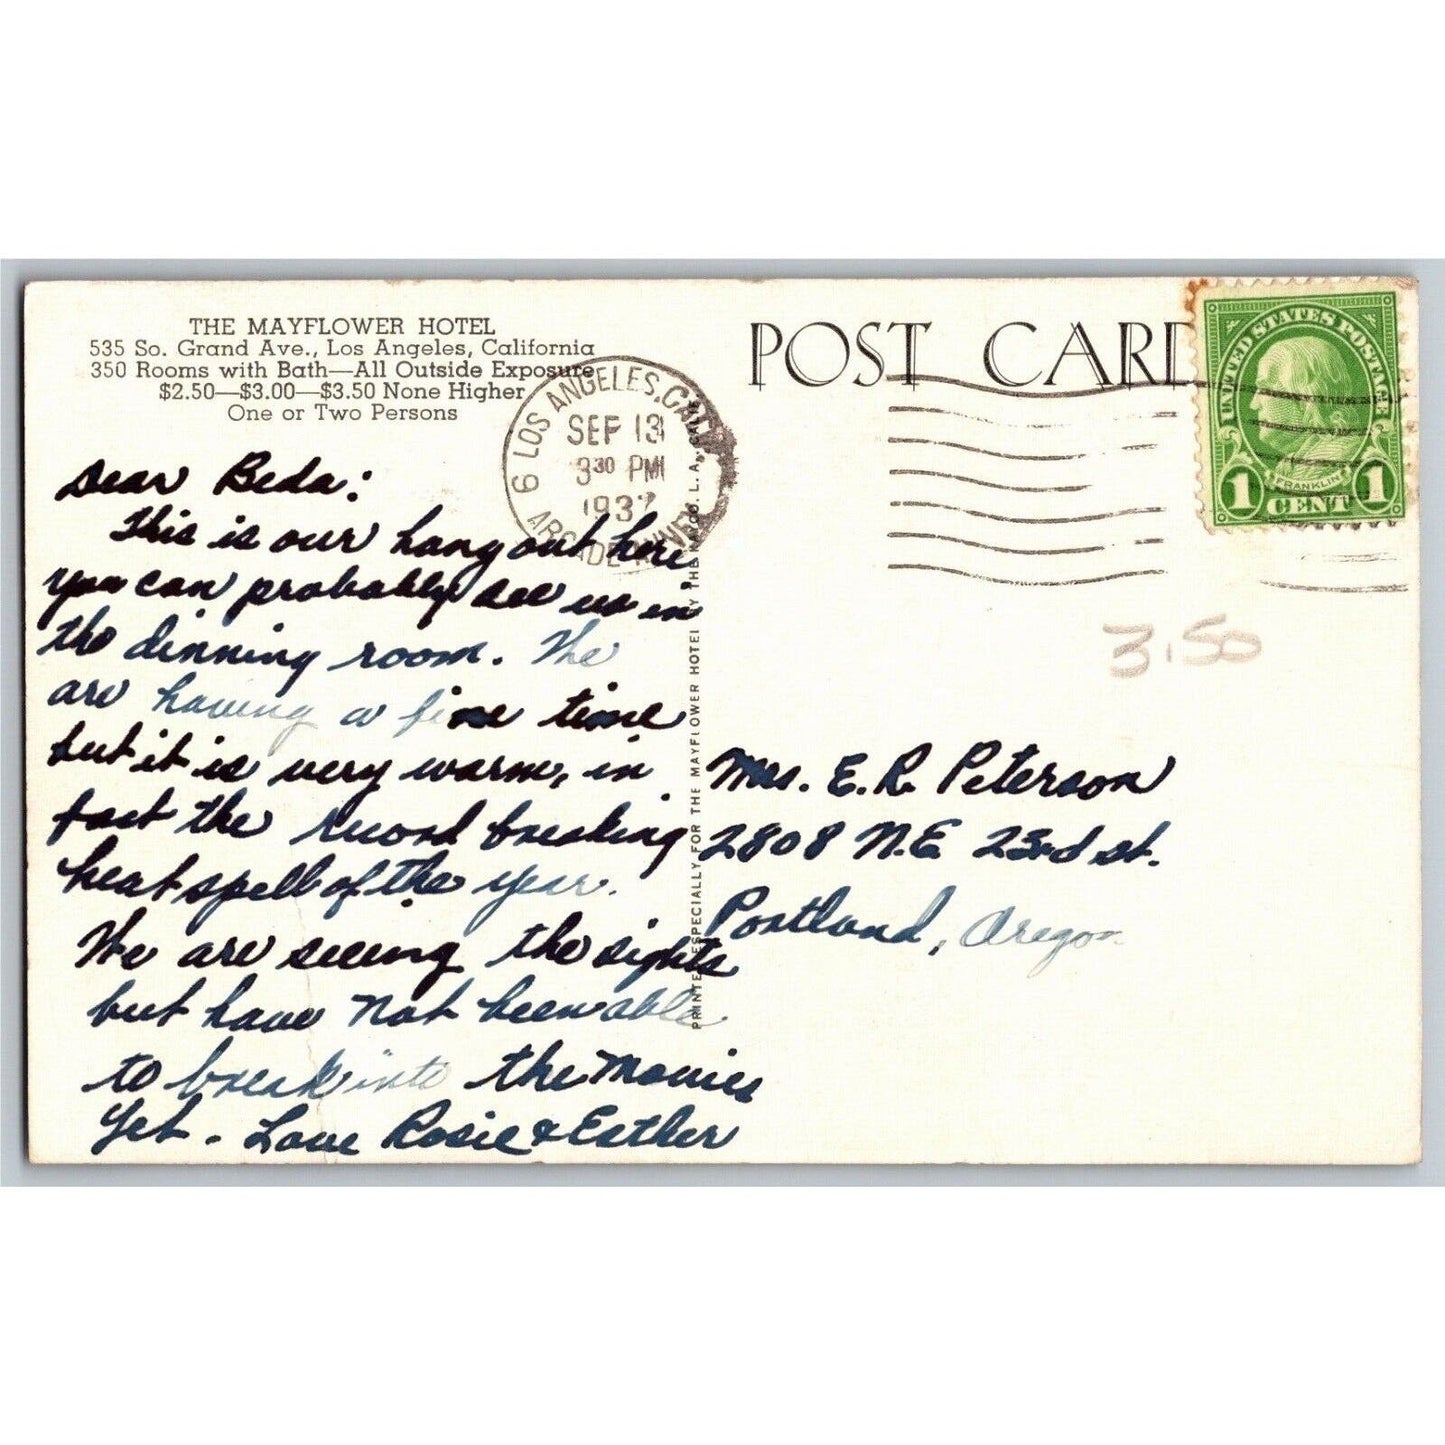 THE MAYFLOWER HOTEL
535 So. Grand Ave., Los Angeles, California
350 Rooms with Bath—All Outside Exposure
$2.50—$3.00—$3.50 None Higher
One or Two Persons
Dear Beda:
This is our hang out here,
you can probably see us in
the dinning room. We
are having a fine time
but it is very warm, in
fact the record breaking
heat spell of the year.
We are seeing the sights
but have not been able
to break into the movies
yet. Love Rosie & Esther
LOS ANGELES, CALIF.
6
SEP 13
3 30 PM
1937
ARCADE ANNEX
PRINTED ESPECIALLY FOR THE MAYFLOWER HOTEL BY THE MACO. L. A., CALIF.
POST CARD
UNITED STATES POSTAGE
FRANKLIN
1 CENT 1
3.50
Mrs. E. R. Peterson
2808 N.E. 23rd st.
Portland, Oregon